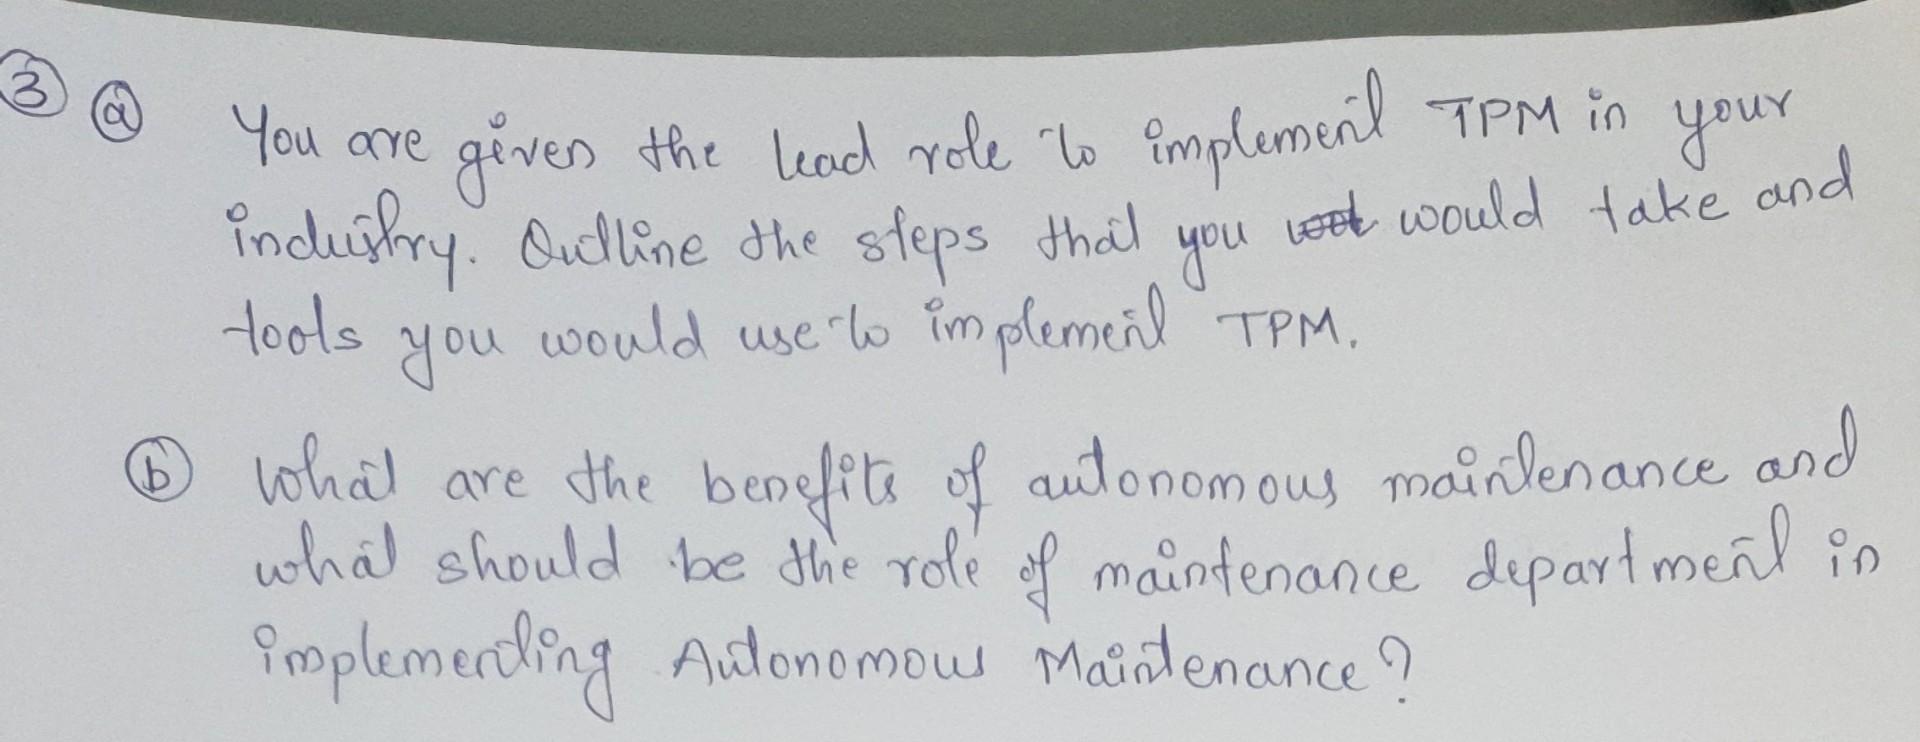 3 a You are given the lead role to implement TPM in your
industry. Outline the steps that you would take and
tools you would use to implement TPM.
b What are the benefits of autonomous maintenance and
what should be the role of maintenance department in
implementing Autonomous Maintenance?